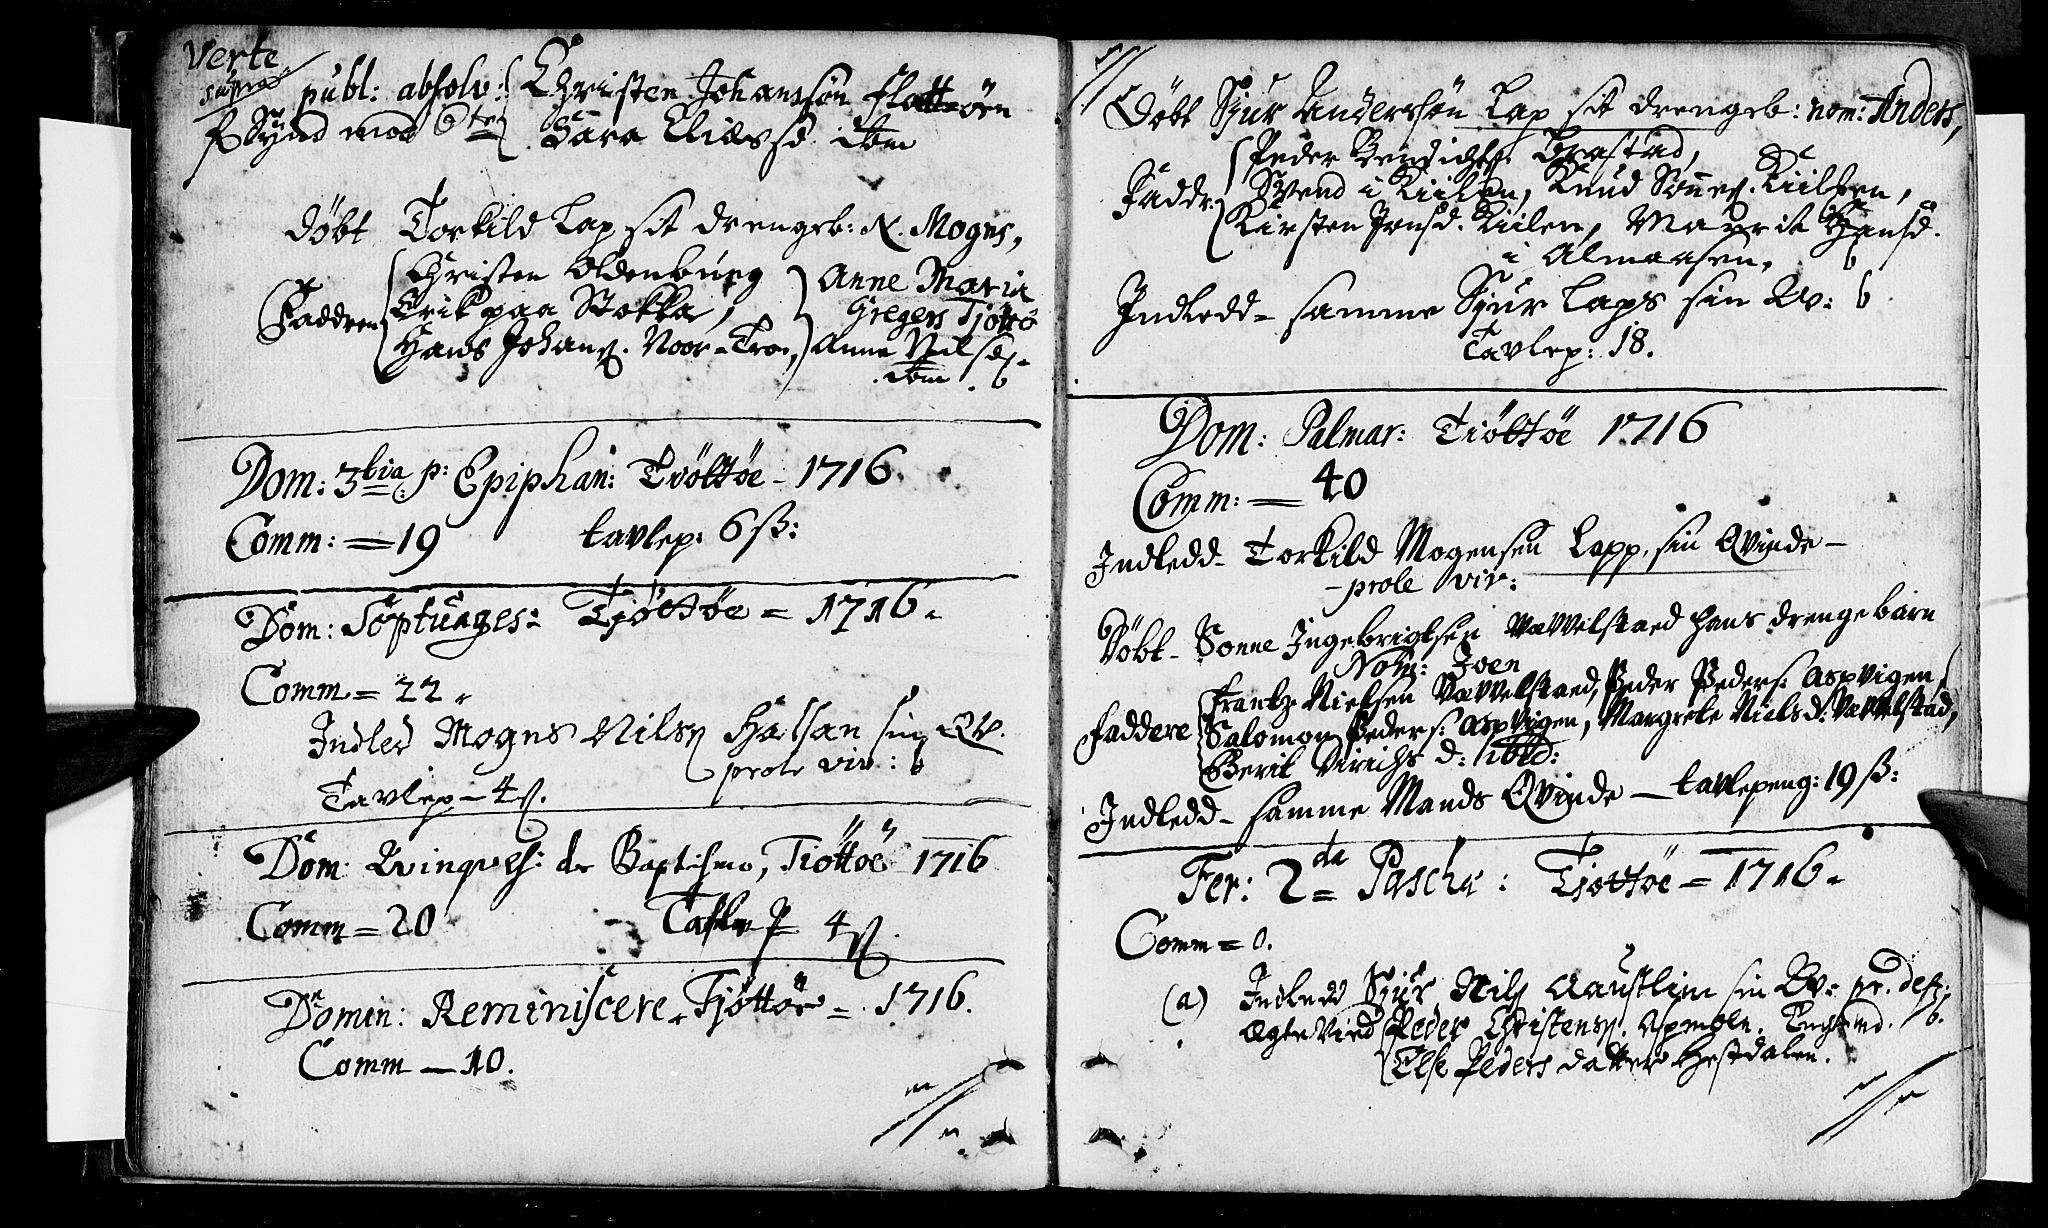 Verte
supra
publ: absolv: Christen Johanssøn Flattøen
f Synd mod 6te Sara Eliæsd. ibm
Døbt Torkild Lap sit drengeb: N. Mogns,
Christen Oldenburg Anne Maria
Faddren Erik paa Stokka, Gregers Tjøttø
Hans Johans. Noor-Troe, Anne Nilsd.
ibm.
Dom: 3tia p: Epiphan: Tiøttøe - 1716.
Comm: = 19 tavlep: 6 ß:
Dom: Septuages: Tjøttøe = 1716.
Comm = 22.
Indled Mogns Nilss Halsan sin QV.
prole viv:
Tavlep - 4 ß.
Dom: Qvinqves: de Baptismo, Tiøttøe 1716
Comm = 20 Tafle P 4 ß.
Domin: Reminiscere. Tjøttøe = 1716.
Comm — 10.
Døbt Sjur Anderssøn Lap sit drengeb: nom: Anders,
Peder Bendichss. Brastad,
Faddr: Svend i Kiilen, Knud Sørens. Kiilen,
Kirsten Jensd. Kiilen, Maurit Hansd.
i Almaasen.
Indledd - samme Sjur Laps sin Qv:
Tavlep: 18.
Dom: Palmar: Tiøttøe 1716
Comm: = 40
Indledd - Torkild Mogensen Lapp, sin Qvinde -
- prole viv:
Døbt - Sonne Ingebrigtsen Vævelstaed hans drengebarn
Nom: Joen
Frantz Nielsen Vævelstaed, Peder Peders: Aspvigen,
Faddere Salomon Peders: Aspviigen, Margrete Niels d: Vævelstad,
Berit Dirichs d: ibid:
Indledd - samme Mands Qvinde — tavlepeng: 19 ß:
Fer: 2da Pasch: Tjøttøe = 1716.
Comm = 0.
(a) Indledd Sjur Nils Aaustlim sin Qv: pr. def:
Egte Vied Peder Christens.
Else Peders datter Hestdalen.